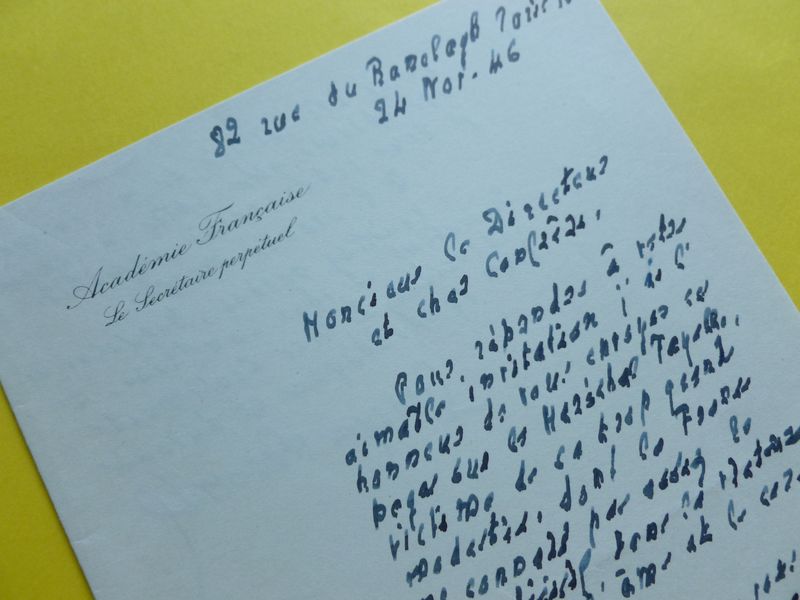 82 rue du Ranelagh Paris
24 Nov. 46
Académie Française
Le Secrétaire perpétuel
Monsieur le Directeur
et cher Confrère,
Pour répondre à votre
aimable invitation j'ai l'
honneur de vous envoyer ces
pages sur le Maréchal Fayolle,
victime de sa trop grande
modestie, dont la France
ne connaît pas assez la
âme et le